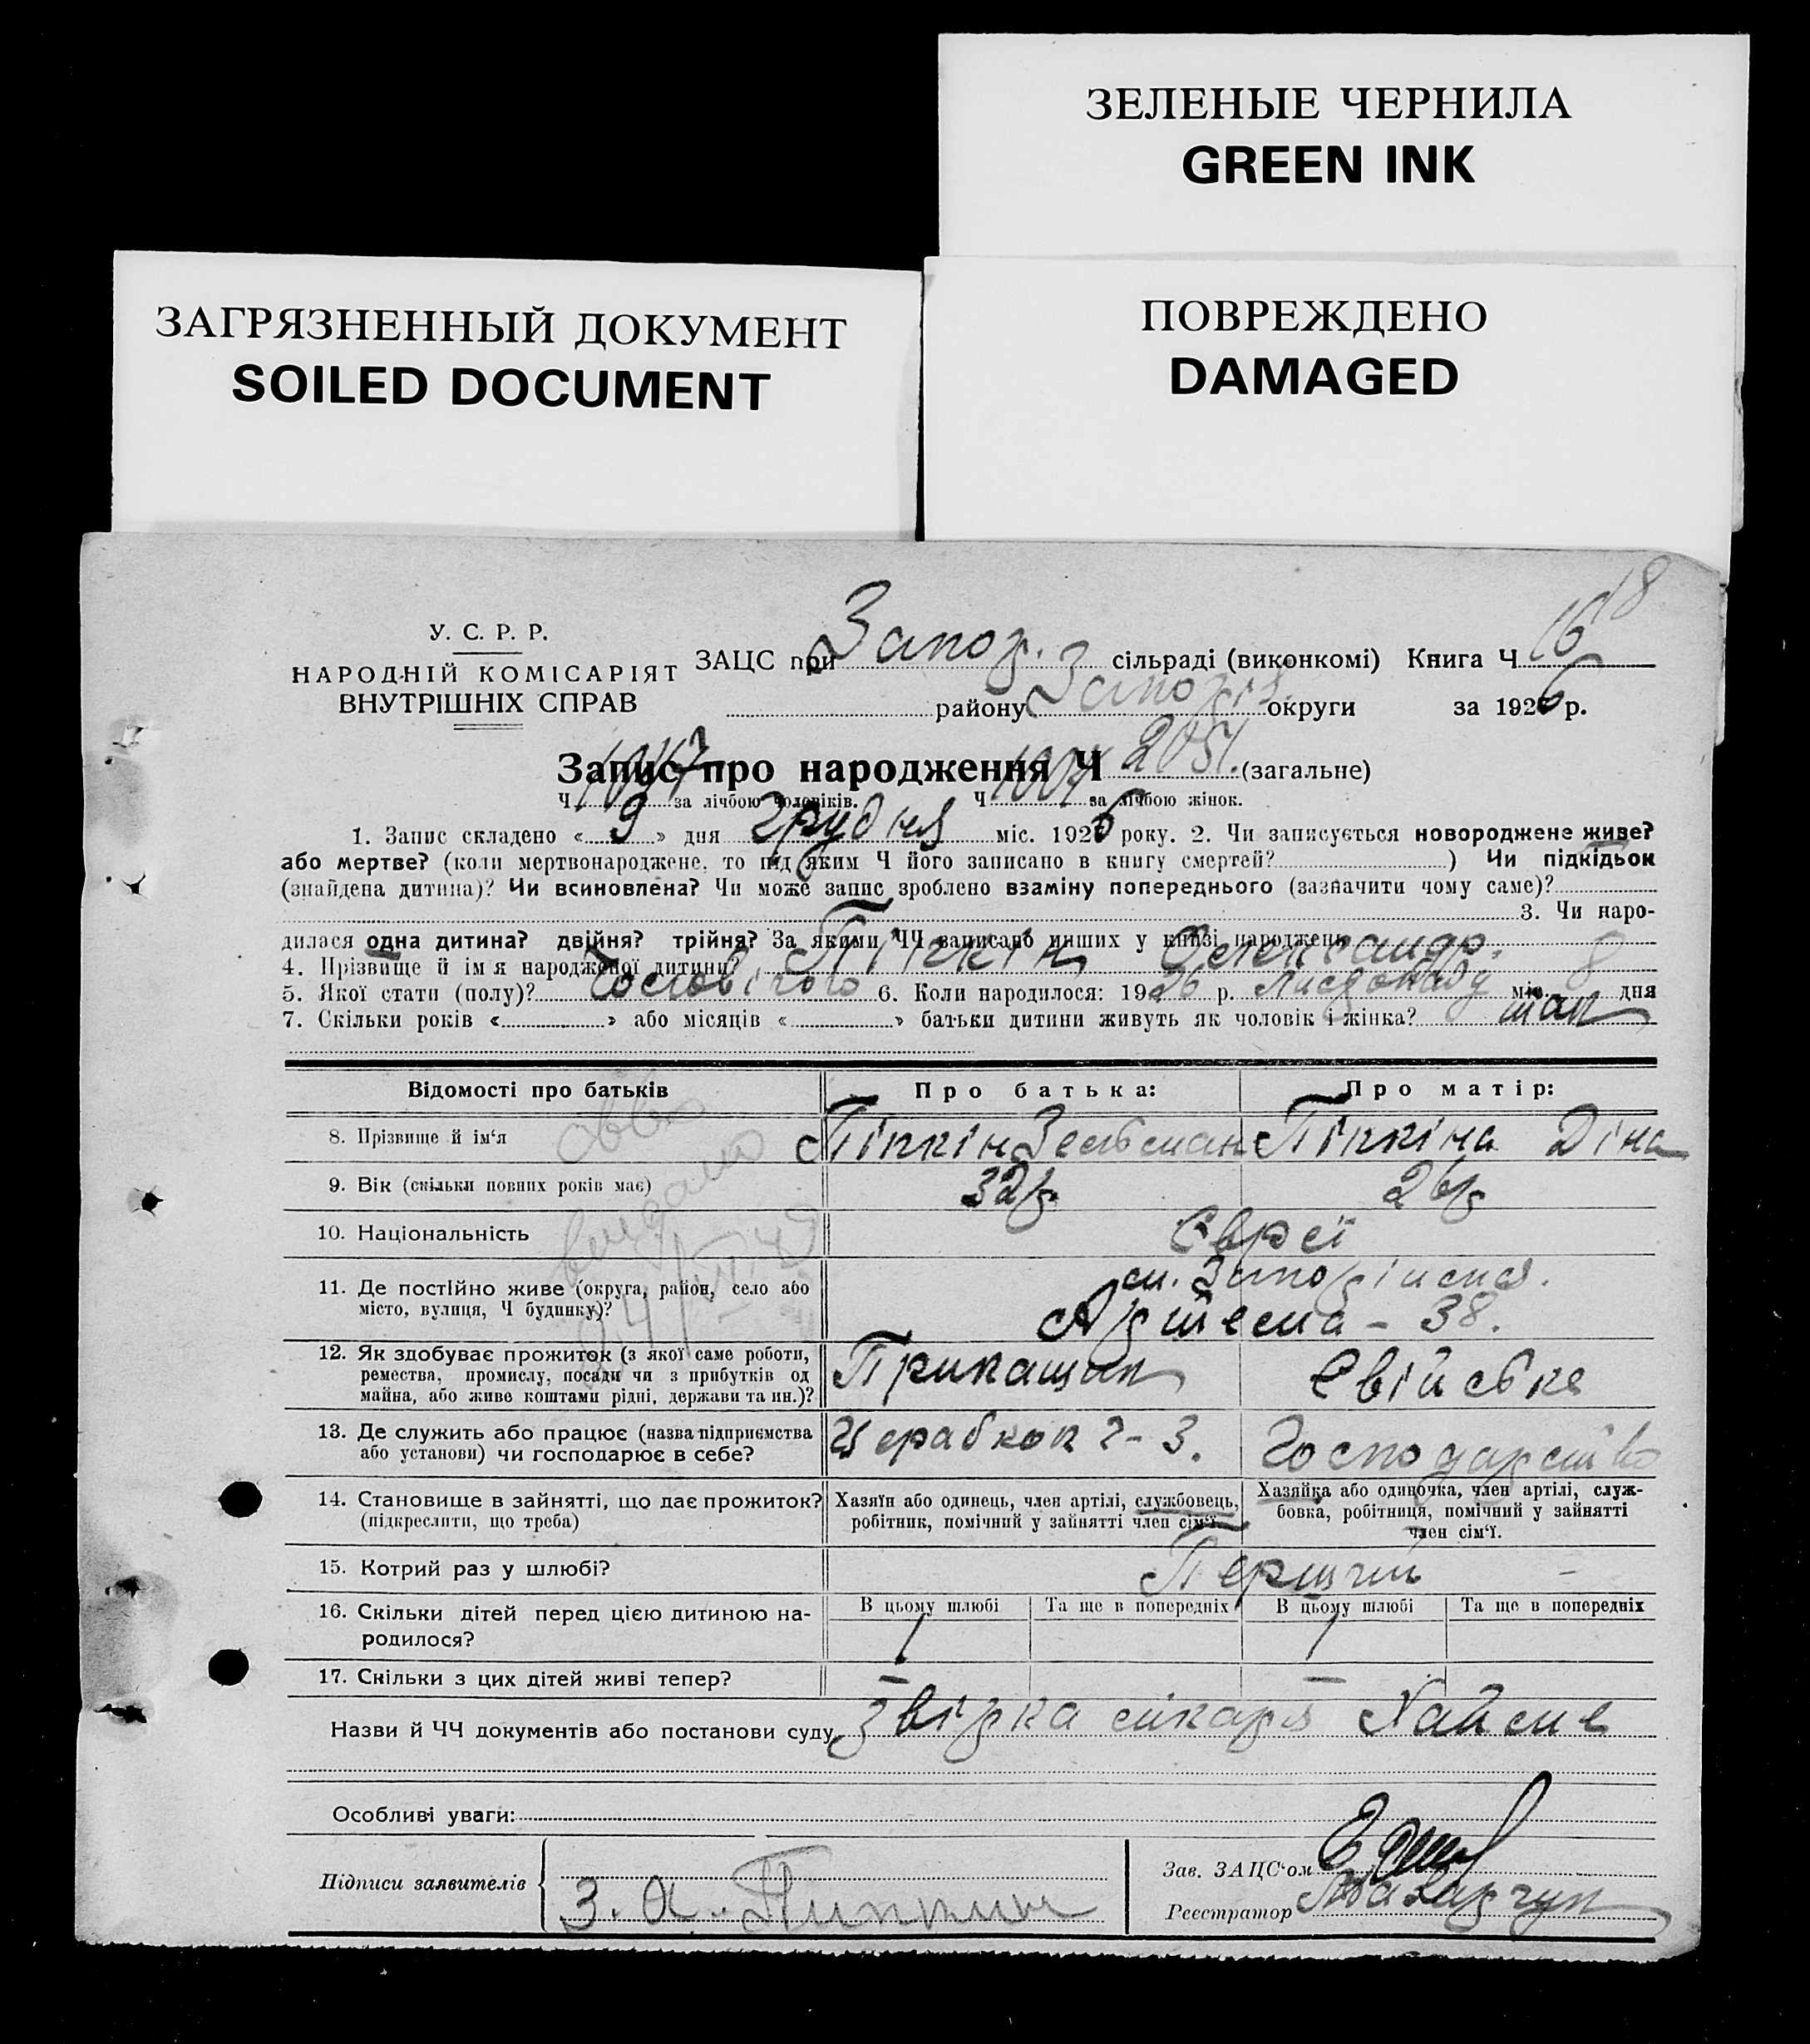 ЗЕЛЕНЫЕ ЧЕРНИЛА
GREEN INK
ЗАГРЯЗНЕННЫЙ ДОКУМЕНТ
SOILED DOCUMENT
ПОВРЕЖДЕНО
DAMAGED
18
У. С. Р. Р.
НАРОДНІЙ КОМІСАРІЯТ
ВНУТРІШНІХ СПРАВ
ЗАЦС при Запор. сільраді (виконкомі) Книга Ч 16
району Запоріз. округи за 1926 р.
Запис про народження Ч 2051. (загальне)
Ч 1047 за лічбою чоловіків. Ч 1004 за лічбою жінок.
1. Запис складено « 9 » дня Грудня міс. 1926 року. 2. Чи записується новороджене живе?
або мертве? (коли мертвонароджене, то під яким Ч його записано в книгу смертей? ) Чи підкідьок
(знайдена дитина)? Чи всиновлена? Чи може запис зроблено взаміну попереднього (зазначити чому саме)?
3. Чи наро-
дилася одна дитина? двійня? трійня? За якими ЧЧ записано инших у книзі народжень
4. Прізвище й ім'я народженої дитини? Піпкін Олександр.
5. Якої стати (полу)? Чоловічого 6. Коли народилося: 1926 р. Листопаду міс. 8 дня
7. Скільки років « » або місяців « » батьки дитини живуть як чоловік і жінка? так
Відомості про батьків Про батька: Про матір:
8. Прізвище й ім'я Піпкін Зельман Піпкіна Діна
9. Вік (скільки повних років має) 32 р. 26 р.
10. Національність Євреї
11. Де постійно живе (округа, район, село або м. Запоріжжя.
місто, вулиця, Ч будинку)? Артема - 38.
12. Як здобуває прожиток (з якої саме роботи,
ремества, промислу, посади чи з прибутків од Прикащик Свійське
майна, або живе коштами рідні, держави та ин.)?
13. Де служить або працює (назва підприємства Церабкоп Ч - 3. Господарство
або установи) чи господарює в себе?
14. Становище в зайнятті, що дає прожиток? Хазяїн або одинець, член артілі, службовець, Хазяйка або одиночка, член артілі, служ-
(підкреслити, що треба) робітник, помічний у зайнятті член сім'ї. бовка, робітниця, помічний у зайнятті
член сім'ї.
15. Котрий раз у шлюбі? Перший -
16. Скільки дітей перед цією дитиною на- В цьому шлюбі Та ще в попередніх В цьому шлюбі Та ще в попередніх
родилося? 1 1
17. Скільки з цих дітей живі тепер? — —
Назви й ЧЧ документів або постанови суду Звірка лікаря
Особливі уваги:
Підписи заявителів З. А. Пипкин
Зав. ЗАЦС'ом
Реєстратор